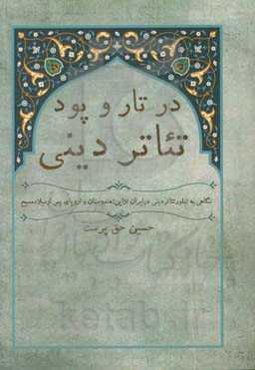 در تار و پود
تئاتر دینی
نگاهی به تبلور تئاتر دینی در ایران، ژاپن، هندوستان و اروپای پس از میلاد مسیح
حسین حق پرست
ketab.ir